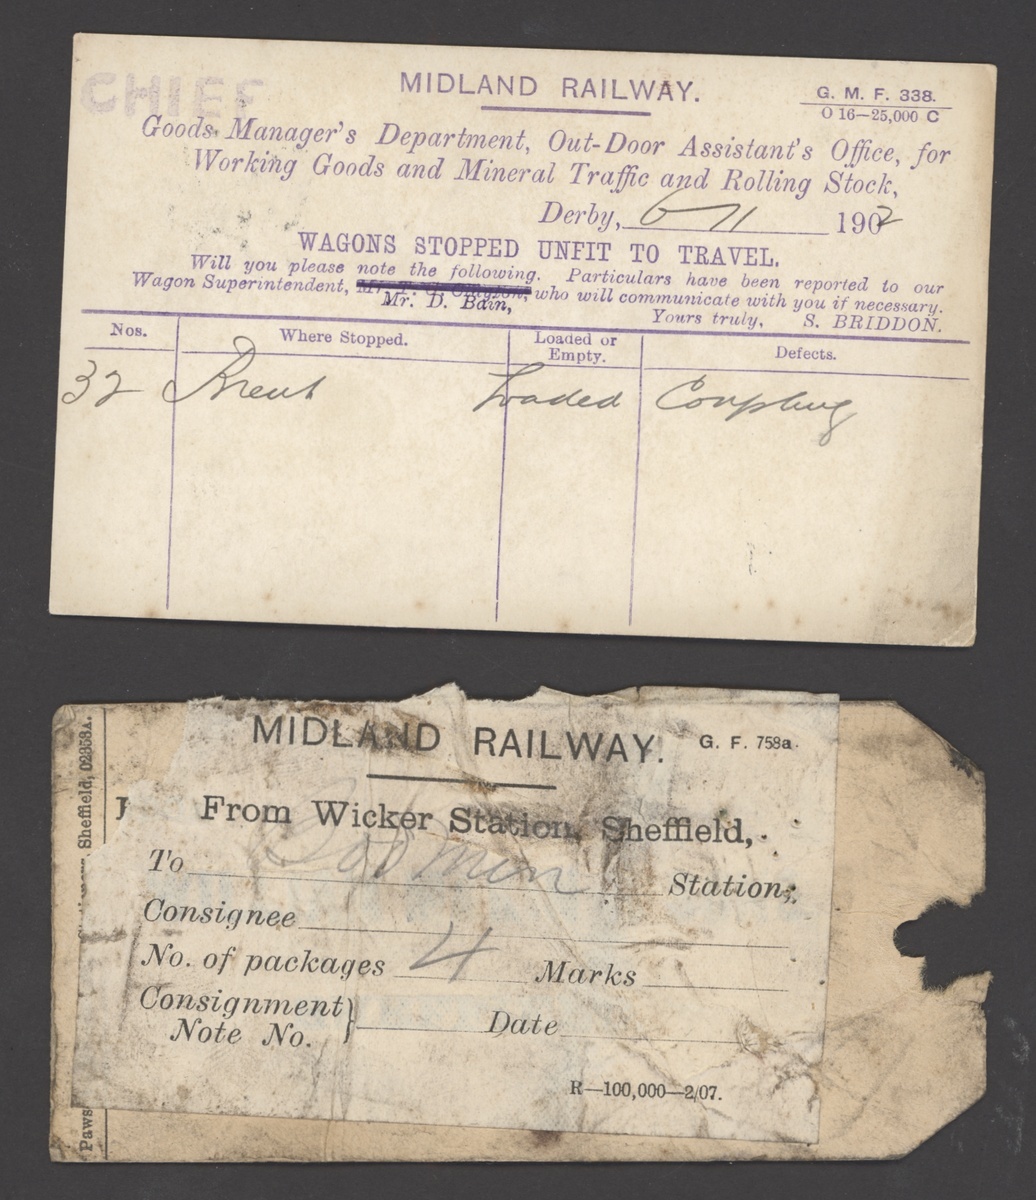 CHIEF
MIDLAND RAILWAY.
G. M. F. 338.
O 16—25,000 C
Goods Manager's Department, Out-Door Assistant's Office, for
Working Goods and Mineral Traffic and Rolling Stock,
Derby, 6 11 1902
WAGONS STOPPED UNFIT TO TRAVEL.
Will you please note the following. Particulars have been reported to our
Wagon Superintendent, Mr. T. G. Clayton, who will communicate with you if necessary.
Mr. D. Bain,
Yours truly, S. BRIDDON.
Nos. Where Stopped. Loaded or Empty. Defects.
32 Brent Loaded Coupling
MIDLAND RAILWAY. G. F. 758a.
From Wicker Station, Sheffield,
To Bodmin Station,
Consignee
No. of packages 4 Marks
Consignment
Note No. Date
R—100,000—2/07.
Sheffield, 02858A.
Paws